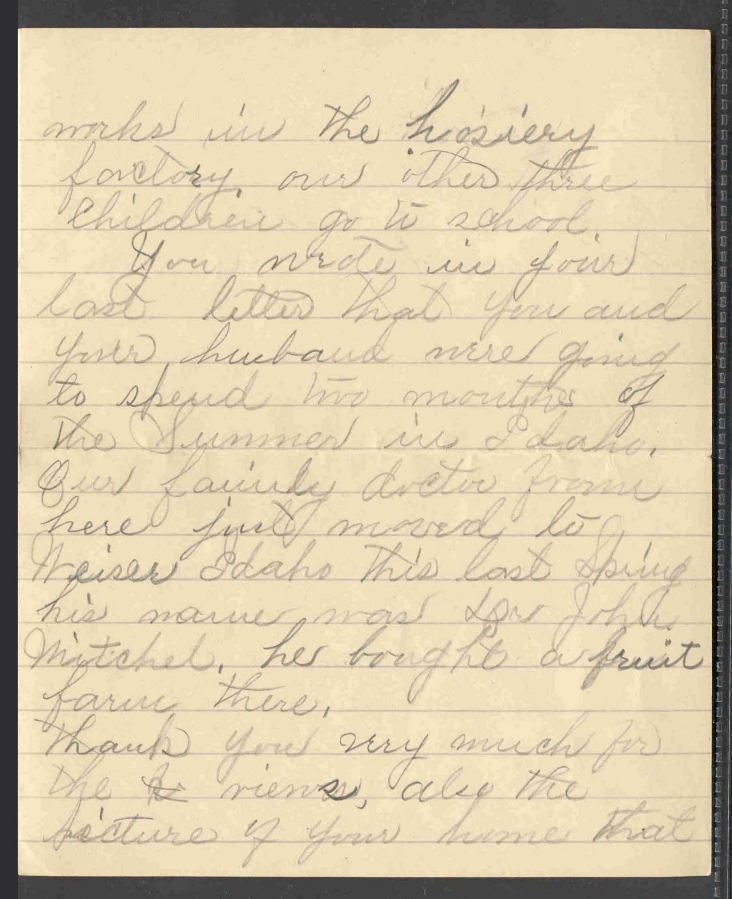 works in the hosiery
factory, our other three
Children go to school.
You wrote in your
last letter that you and
your husband were going
to spend two months of
the Summer in Idaho.
Our family doctor from
here just moved to
Weiser Idaho this last Spring
his name was Dr John
Mitchel, he bought a fruit
farm there,
thank you very much for
the views, also the
picture of your home that